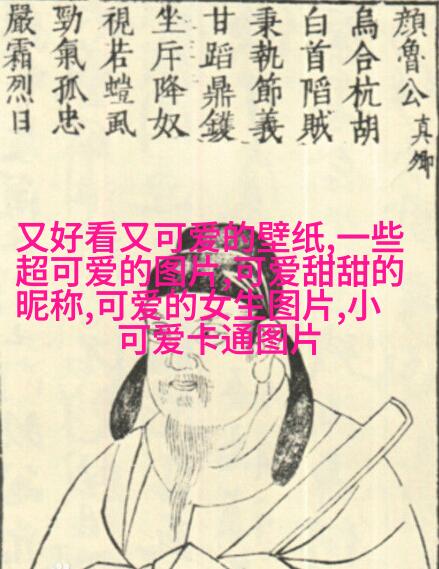 顔魯公真卿
烏合杭胡
白首陷賊
秉執節義
甘蹈鼎鑊
坐斥降奴
視若螘虱
勁氣孤忠
嚴霜烈日
又好看又可爱的壁纸,一些
超可爱的图片,可爱甜甜的
昵称,可爱的女生图片,小
可爱卡通图片